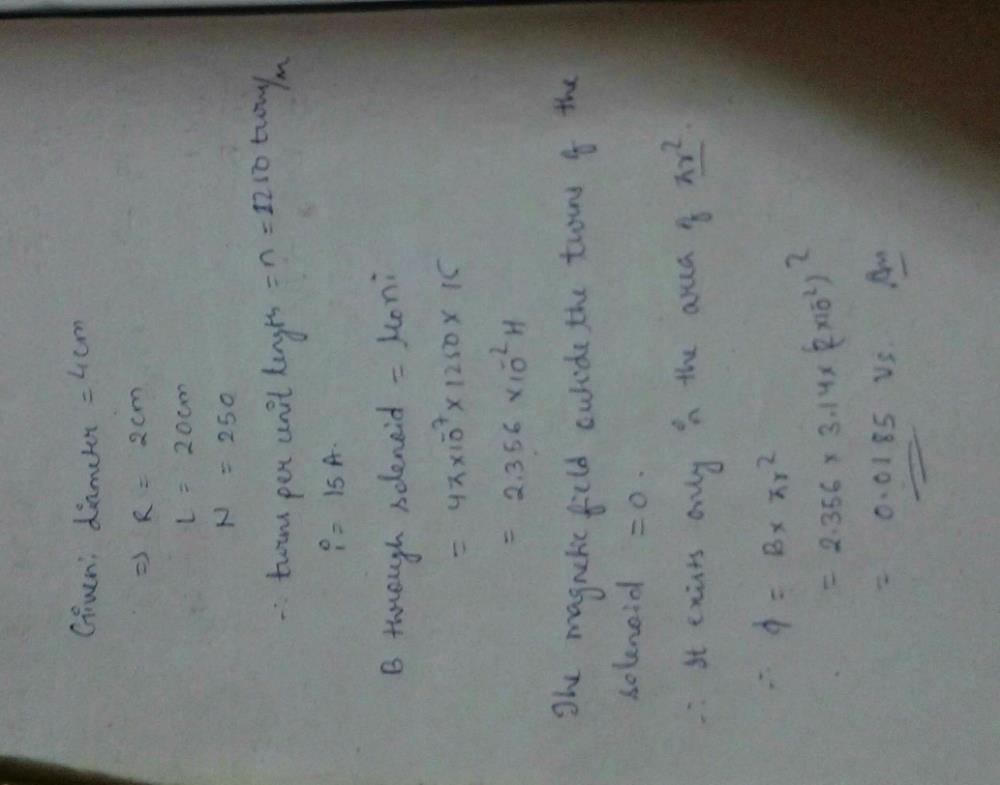 Given: diameter = 4cm
⇒ R = 2cm
L = 20cm
N = 250
∴ turns per unit length = n = 1250 turns/m
i = 15A.
B through solenoid = μ₀ni
= 4π×10⁻⁷×1250×15
= 2.356×10⁻² H
The magnetic field outside the turns of the
solenoid = 0.
∴ It exists only in the area of πr².
∴ ϕ = B×πr²
= 2.356 × 3.14×(2×10⁻²)²
= 0.0185 Vs. Ans